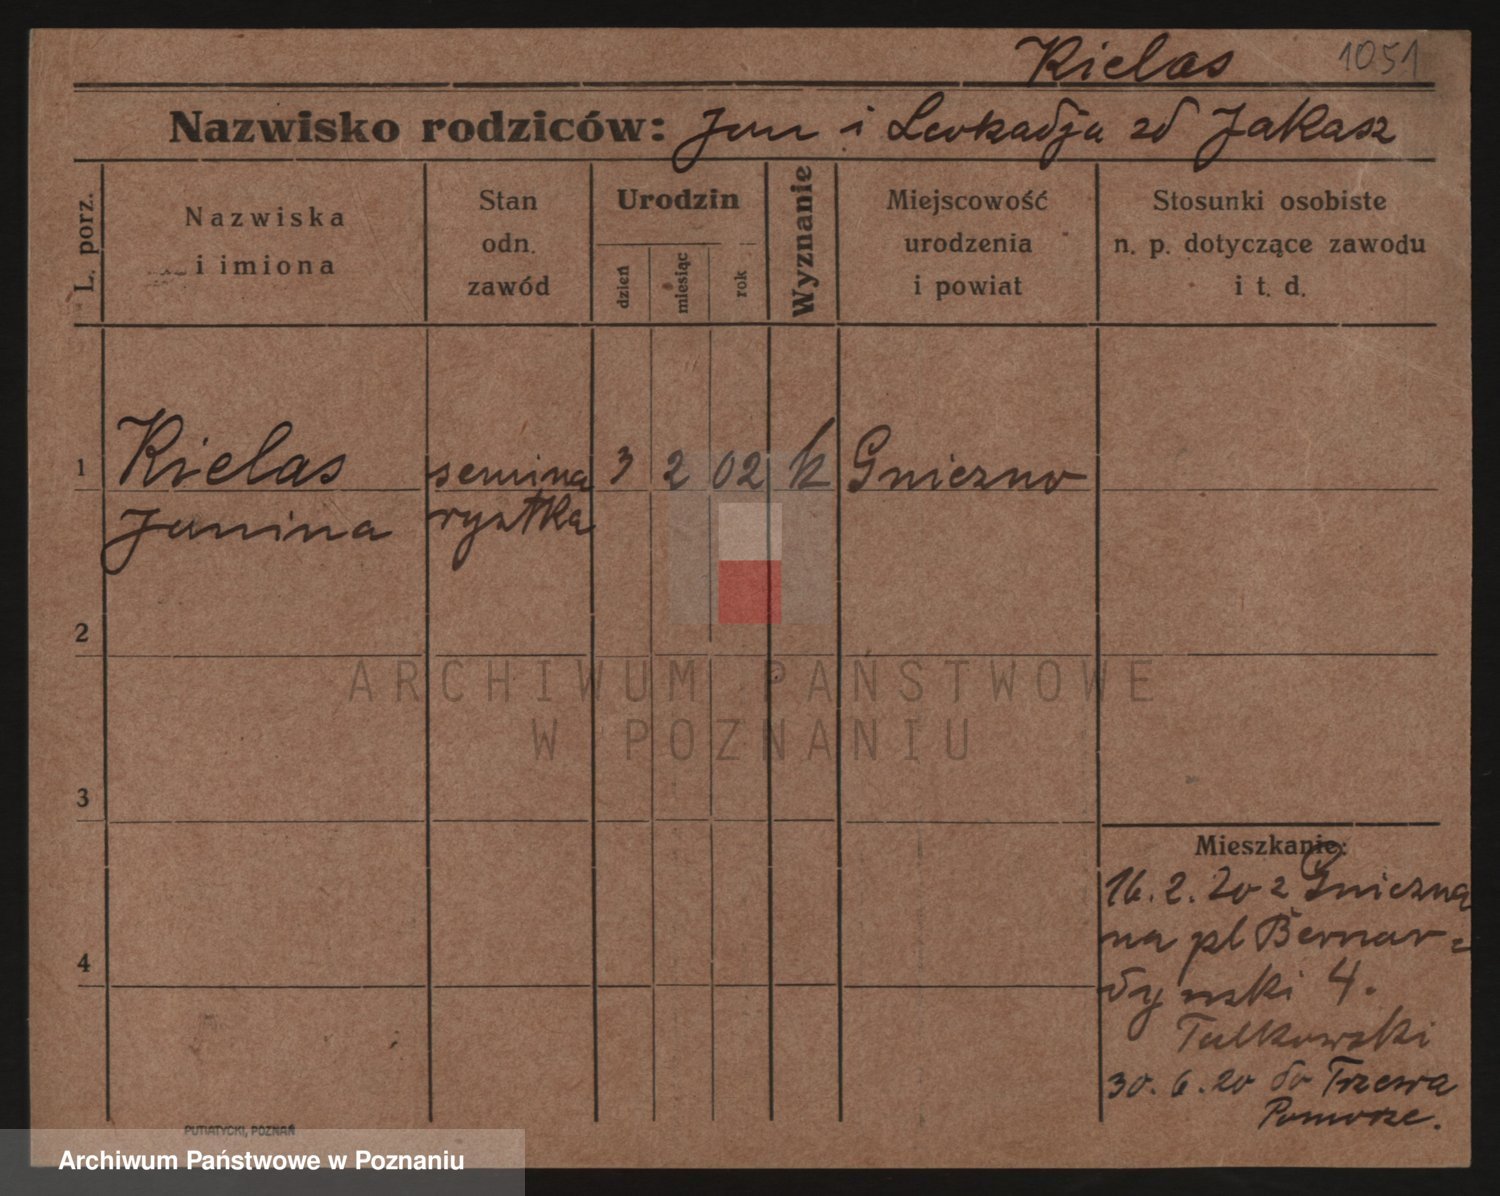 Kielas 1051
Nazwisko rodziców: Jan i Leokadja zd Jakasz
L. porz.
Nazwiska
i imiona
Stan
odn.
zawód
Urodzin
dzień
miesiąc
rok
Wyznanie
Miejscowość
urodzenia
i powiat
Stosunki osobiste
n. p. dotyczące zawodu
i t. d.
1 Kielas semina 3 2 02 k Gniezno
Janina rystka
2
ARCHIWUM PAŃSTWOWE
W POZNANIU
3
Mieszkanie:
16.2.20 z Gniezna
na pl Bernar=
4
dyński 4.
30.6.20 do
Pomorze.
PUTIATYCKI, POZNAŃ
Archiwum Państwowe w Poznaniu